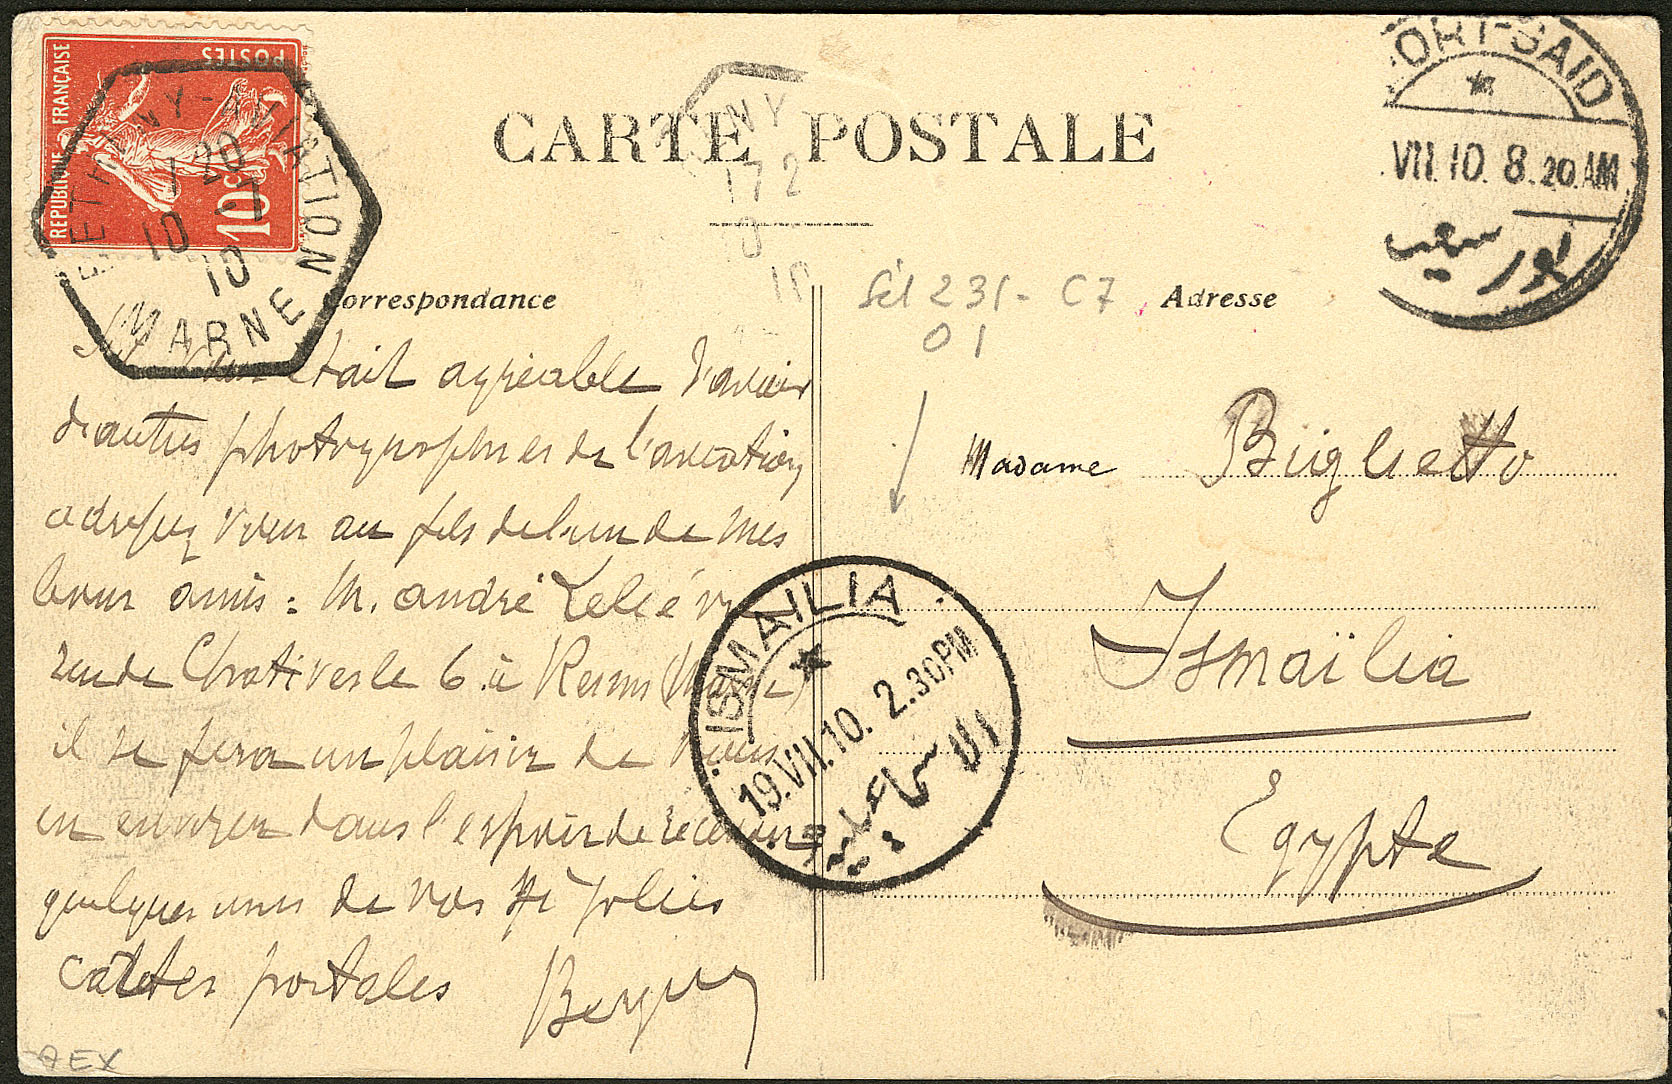 REPUBLIQUE FRANÇAISE
POSTES
10c
BETHENY-AVIATION
20
10
10
MARNE
NY
172
CARTE POSTALE
PORT-SAID
VII.10. 8.20.AM
بور سعيد
Correspondance
Adresse
231- C7
01
S'il vous était agréable d'avoir
d'autres photographies de l'aviation
adressez vous au fils de l'un de mes
bons amis : M. andré Lelièvre
rue de Chativesle 6. à Reims (Marne)
il se fera un plaisir de vous
en envoyer dans l'espoir de recevoir
quelques unes de vos si jolies
cartes postales
Madame
Ismaïlia
Egypte
ISMAILIA
19.VII.10. 2.30PM
الاسماعيلية
AEX